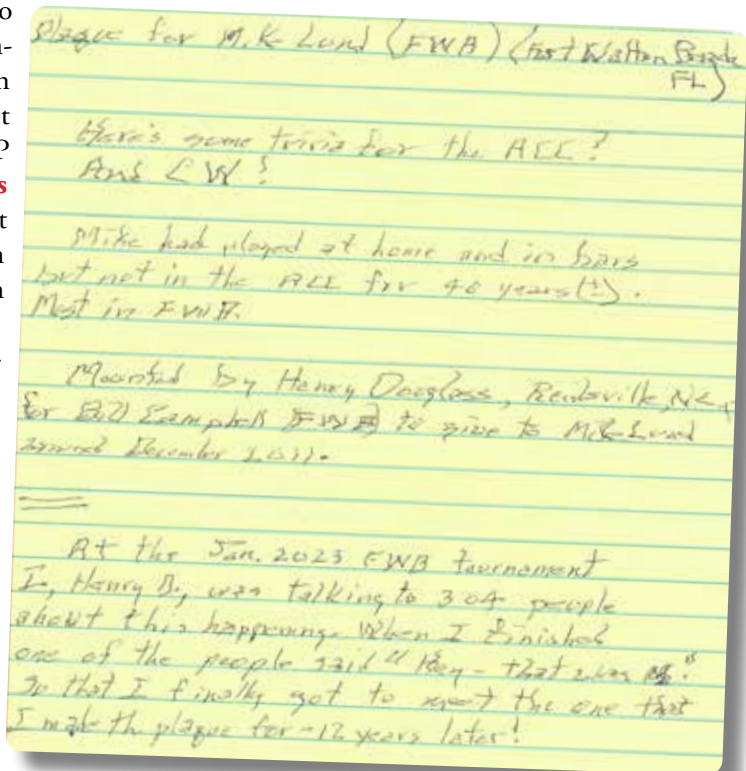 o
-
n
t
P
s
t
n
n
Plaque for M.K Lund (FWB) (Fort Walton Beach
FL)
Here's some trivia for the ACC!
And CW!
Mike had played at home and in bars
but not in the ACC for 40 years (±).
Most in FWB.
Mounted by Henry Douglass, Reidsville, NC,
for Bill Campbell FWB to give to Mike Lund
around December 2011.
At the Jan. 2023 FWB tournament
I, Henry D., was talking to 3 or 4 people
about this happening. When I finished
one of the people said "Hey - that was me."
So that I finally got to meet the one that
I made th plaque for - 12 years later!